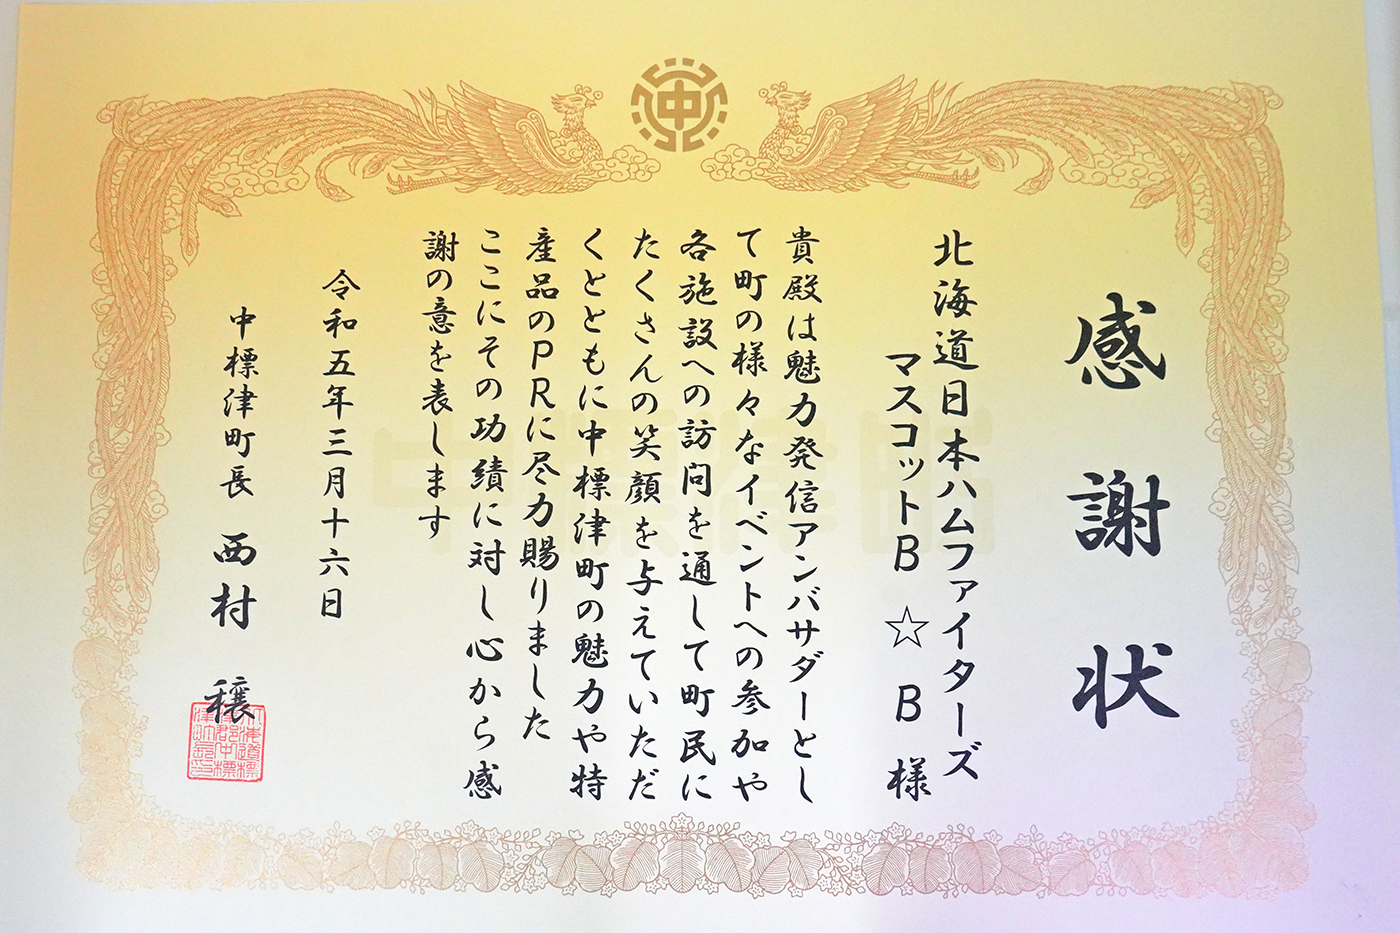 中
感謝状
北海道日本ハムファイターズ
マスコットB☆B様
貴殿は魅力発信アンバサダーとし
て町の様々なイベントへの参加や
各施設への訪問を通して町民に
たくさんの笑顔を与えていただ
くとともに中標津町の魅力や特
産品のPRに尽力賜りました
ここにその功績に対し心から感
謝の意を表します
令和五年三月十六日
中標津町長 西村 穣